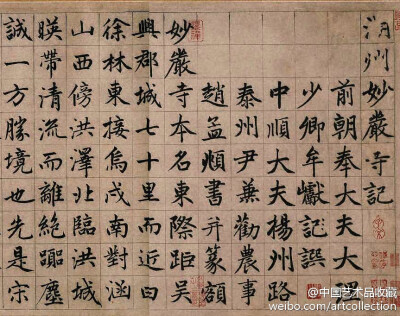 湖州妙嚴寺記
前朝奉大夫大理
少卿牟巘記譔
中順大夫楊州路
泰州尹兼勸農事
趙孟頫書并篆額
妙嚴寺本名東際距吳
興郡城七十里而近曰
徐林東接烏戍南對涵
山西傍洪澤北臨洪城
暎帶清流而離絕囂塵
誠一方勝境也先是宋
@中国艺术品收藏
weibo.com/artcollection